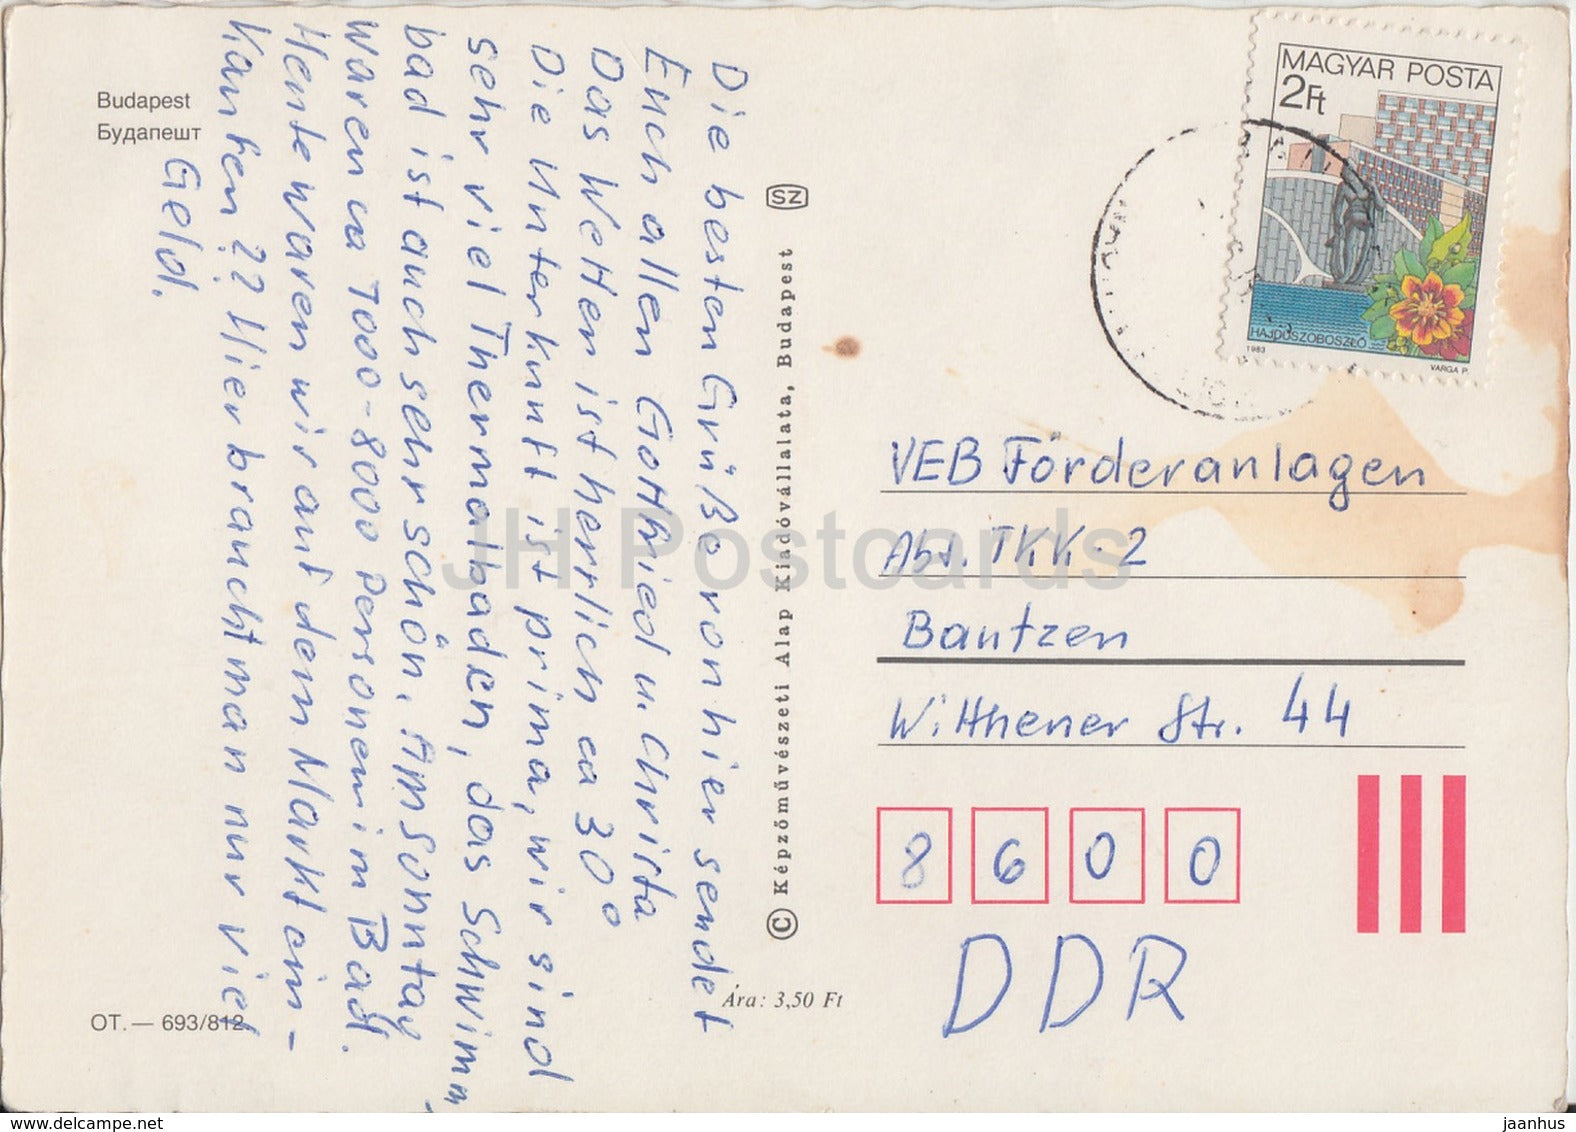 Budapest
Будапешт
Die besten Grüße von hier sendet
Euch allen Gottfried u. Christa
Das Wetter ist herrlich ca 30°
Die Unterkunft ist prima, wir sind
sehr viel Thermalbaden, das Schwimm-
bad ist auch sehr schön. Am Sonntag
waren ca 7000-8000 Personen im Bad.
Heute waren wir auf dem Markt ein-
kaufen?? Hier braucht man nur viel
Geld.
OT. — 693/812
SZ
© Képzőművészeti Alap Kiadóvállalata, Budapest
Ára: 3,50 Ft
MAGYAR POSTA
2Ft
HAJDÚSZOBOSZLÓ
1983
VARGA P.
VEB Förderanlagen
Abt. TKK-2
Bautzen
Witthener Str. 44
8600
DDR
JH Postcards
www.delcampe.net
jaanhus